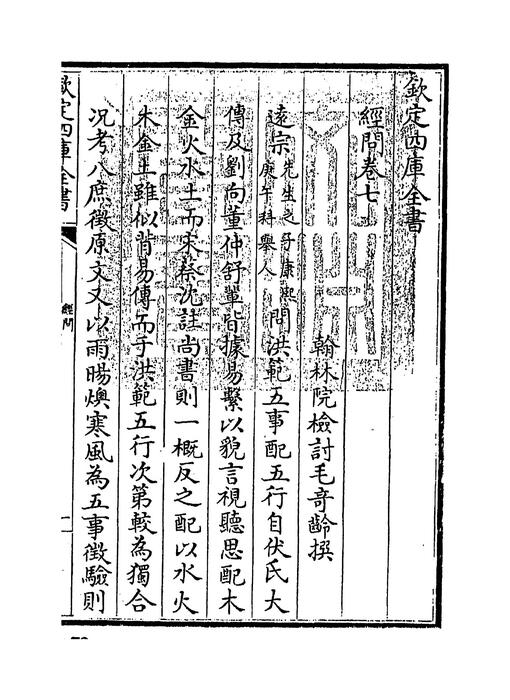 欽定四庫全書
經問卷七
翰林院檢討毛奇齡撰
遠宗先生之子康熙庚午科舉人問洪範五事配五行自伏氏大
傳及劉向董仲舒輩皆據易繫以貌言視聽思配木
金火水土而宋蔡沈註尚書則一概反之配以水火
木金土雖似背易傳而于洪範五行次第較為獨合
况考八庶徵原文又以雨暘燠寒風為五事徵驗則
欽定四庫全書
經問